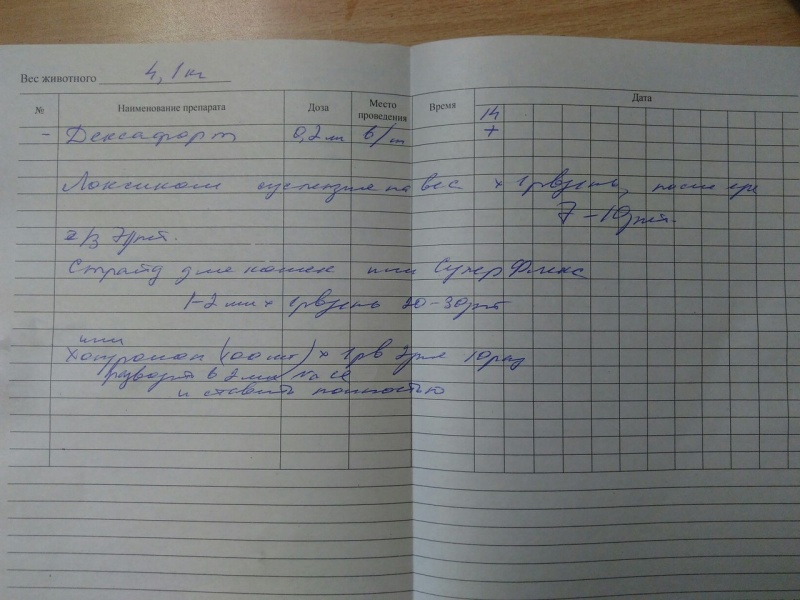 Вес животного 4,1 кг
№ Наименование препарата Доза Место проведения Время Дата
14
- Дексафорт 0,2 мл в/м +
Локсиком суспензия на вес х 1р в день, после еды
7-10 дн.
Страйд для кошек или СуперФлекс
1-2 мл х 1р в день 20-30 дн
или
Хондролон (100 мг) х 1р в 3 дня 10 раз
разводят в 2 мл NaCl
и ставить полностью